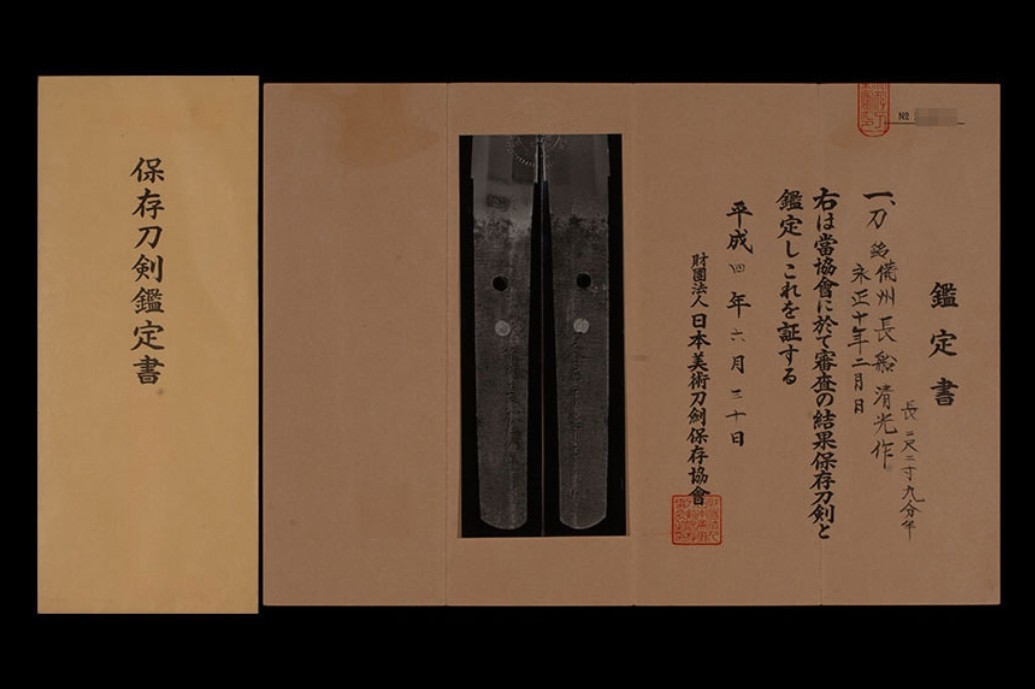 保存刀剣鑑定書
鑑定書
一、刀 銘備州長船清光作
永正十年二月日
長二尺二寸九分半
右は當協會に於て審査の結果保存刀剣と
鑑定しこれを証する
平成四年六月三十日
財團法人日本美術刀劍保存協會
№